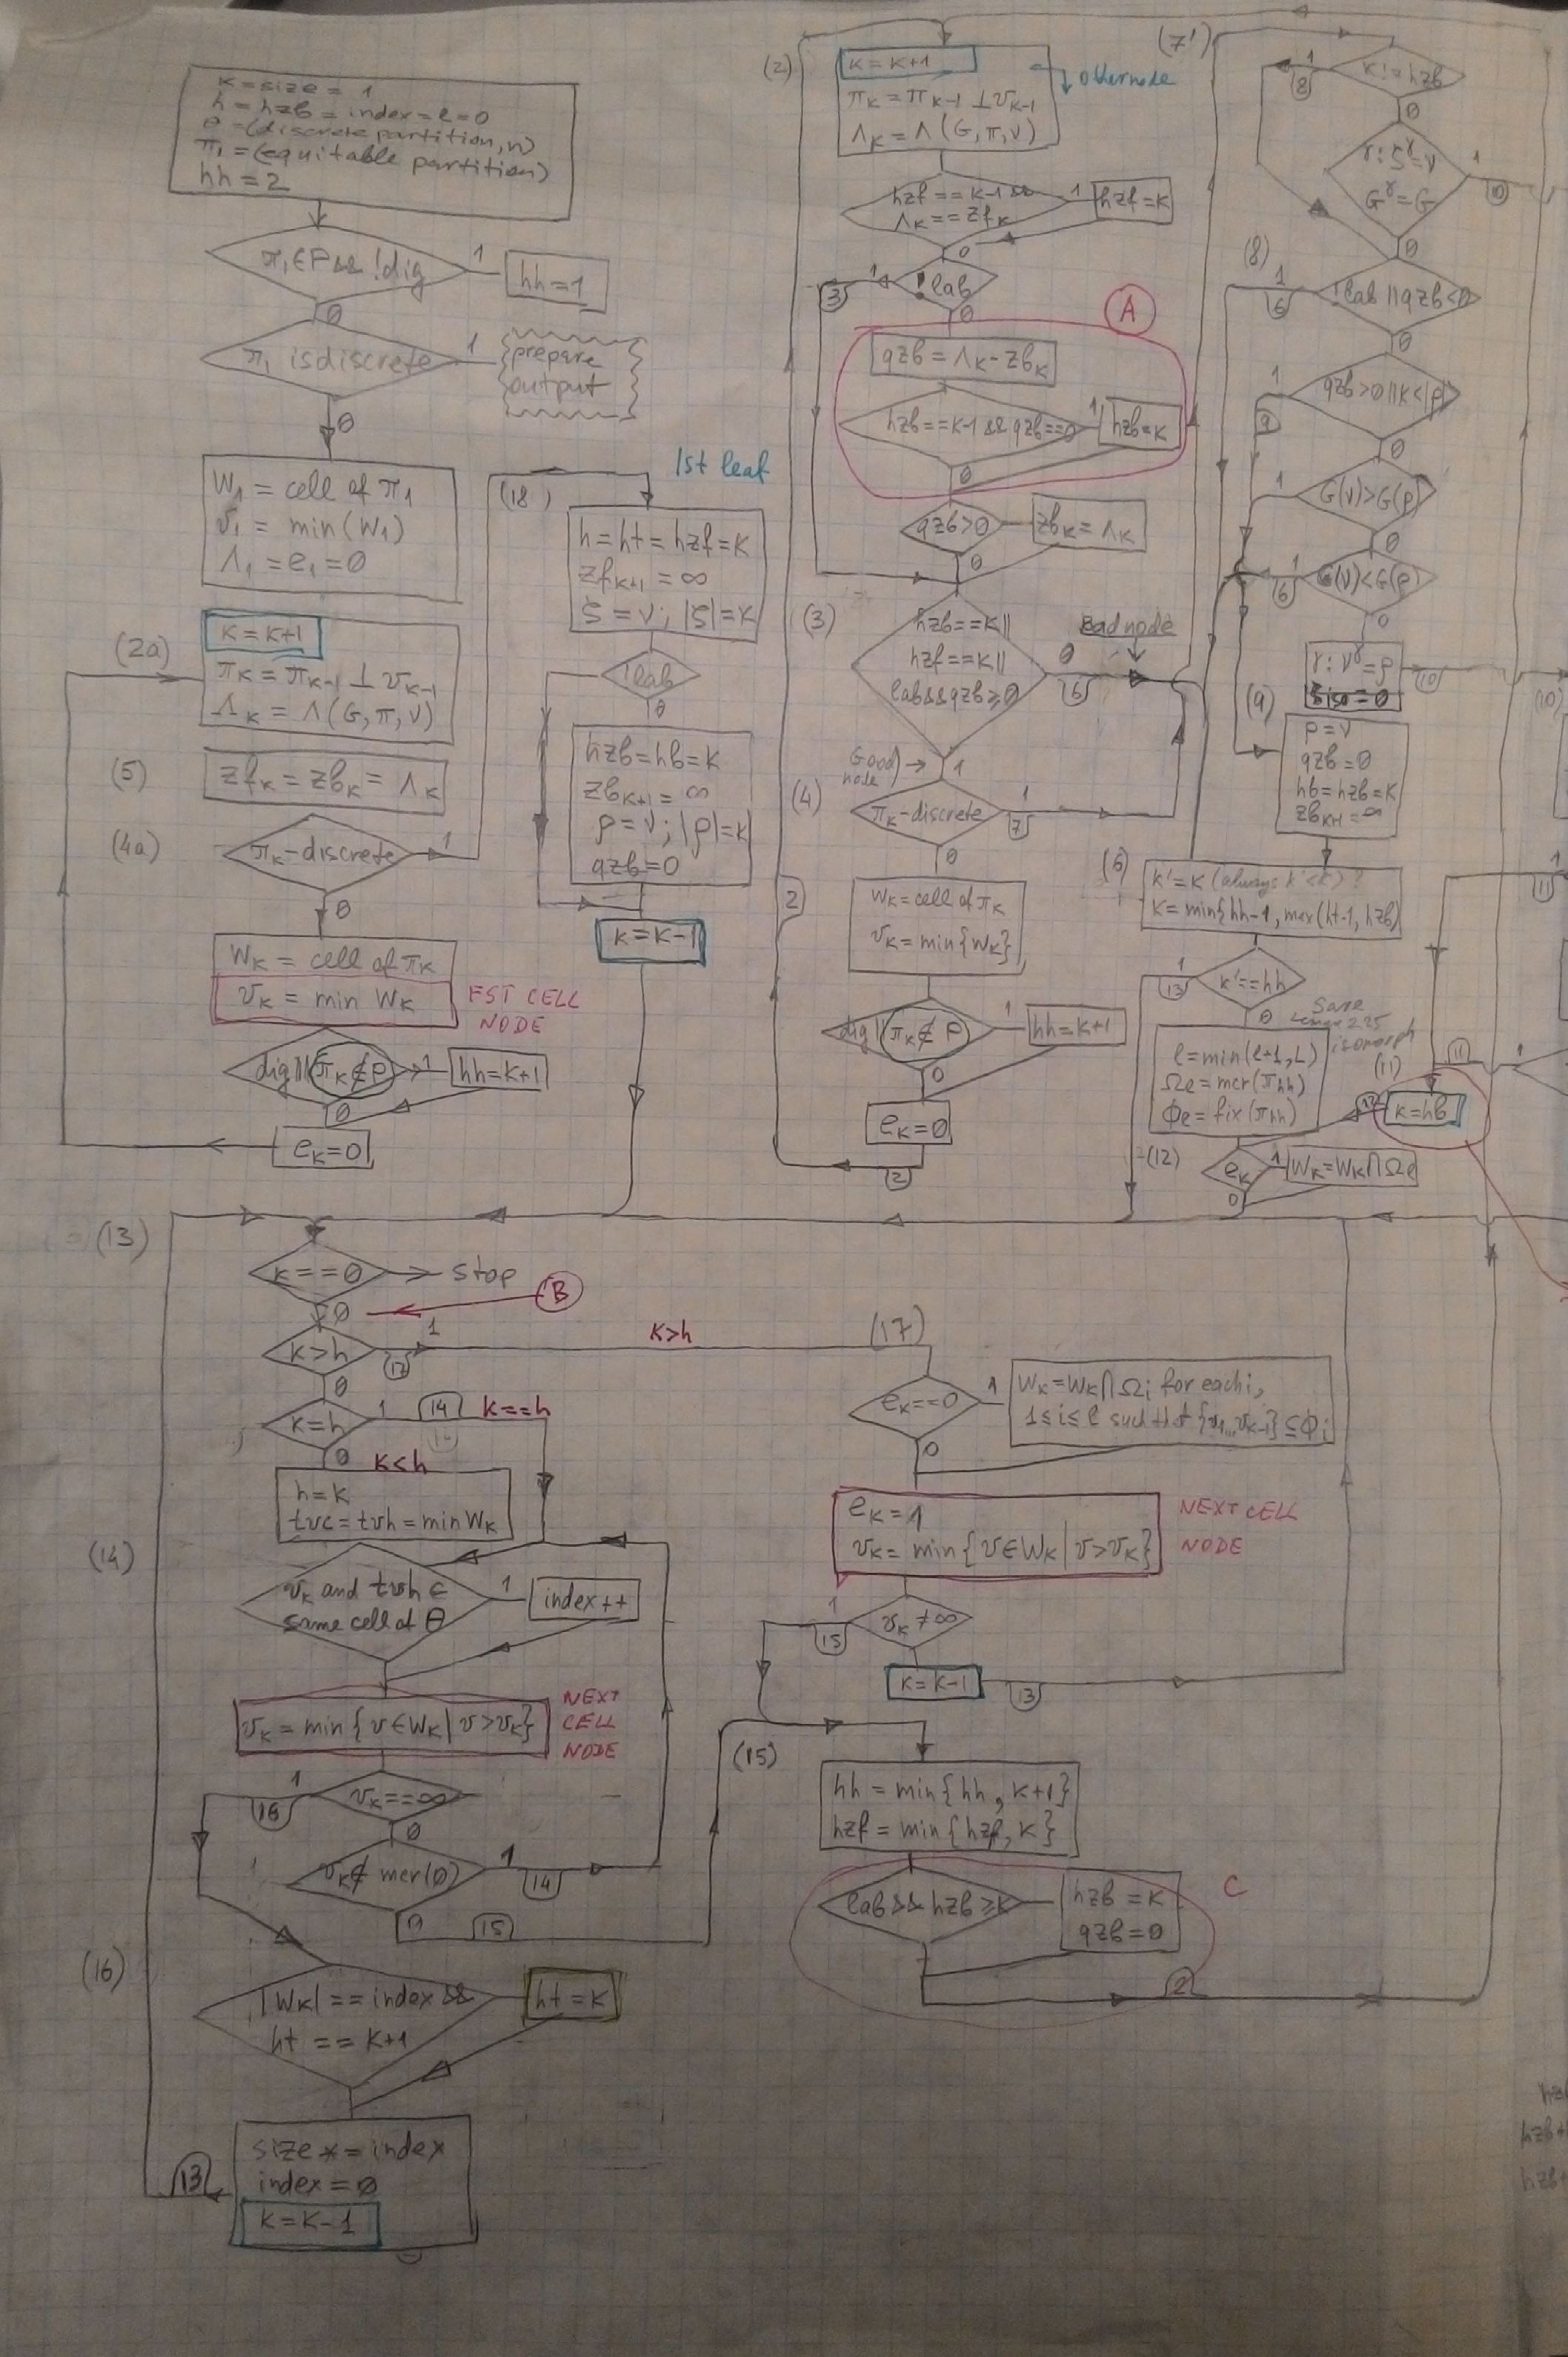 K = size = 1
h = hzb = index = l = 0
θ = (discrete partition, n)
π₁ = (equitable partition)
hh = 2
π₁ ∈ P && !dig
1
hh = 1
0
π₁ is discrete
1
prepare
output
0
W₁ = cell of π₁
v₁ = min (W₁)
Λ₁ = e₁ = 0
(2a)
K = K+1
π_K = π_K-1 ⊥ v_K-1
Λ_K = Λ (G, π, ν)
(5)
zf_K = zb_K = Λ_K
(4a)
π_K - discrete
1
0
W_K = cell of π_K
v_K = min W_K
FST CELL
NODE
dig || π_K ∉ P
1
hh = K+1
0
e_K = 0
(18)
1st leaf
h = ht = hzf = K
zf_K+1 = ∞
ζ = ν; |ζ| = K
!lab
0
hzb = hb = K
zb_K+1 = ∞
ρ = ν; |ρ| = K
qzb = 0
K = K-1
(2)
K = K+1
other node
π_K = π_K-1 ⊥ v_K-1
Λ_K = Λ (G, π, ν)
hzf == K-1 &&
Λ_K == zf_K
1
hzf = K
0
!lab
1
3
0
A
qzb = Λ_K - zb_K
hzb == K-1 && qzb == 0
1
hzb = K
0
qzb > 0
zb_K = Λ_K
0
(3)
hzb == K ||
hzf == K ||
lab && qzb ≥ 0
0
6
Bad node
Good
node
1
(4)
π_K - discrete
1
7
0
W_K = cell of π_K
v_K = min {W_K}
dig || π_K ∉ P
1
hh = K+1
0
e_K = 0
2
2
(7')
K != hzb
1
8
0
γ: ζ^γ = ν
G^γ = G
1
10
0
(8)
!lab || qzb < 0
1
6
0
qzb > 0 || K < |ρ|
1
9
0
G(ν) > G(ρ)
1
0
G(ν) < G(ρ)
1
6
0
γ: ν^γ = ρ
10
(10)
(9)
ρ = ν
qzb = 0
hb = hzb = K
zb_K+1 = ∞
(6)
K' = K (always K' < K)?
K = min{hh-1, max(ht-1, hzb)
K' == hh
1
13
0
Save
isomorph
l = min(l+1, L)
Ωe = mcr(π_hh)
Φe = fix(π_hh)
1
11
(11)
11
1
12
K = hb
(12)
e_K
1
W_K = W_K ∩ Ωe
0
(13)
K == 0
Stop
0
B
K > h
1
17
K>h
0
K = h
1
14
K==h
0
K<h
h = K
tvc = tvh = min W_K
(14)
v_K and tvh ∈
same cell of θ
1
index++
v_K = min {v ∈ W_K | v > v_K}
NEXT
CELL
NODE
v_K == ∞
1
16
0
v_K ∉ mcr(θ)
1
14
0
15
(16)
|W_K| == index &&
ht == K+1
ht = K
size *= index
index = 0
K = K-1
13
(17)
e_K == 0
1
W_K = W_K ∩ Ωi for each i,
1 ≤ i ≤ l such that {v₁...v_K-1} ⊆ Φi
0
e_K = 1
v_K = min {v ∈ W_K | v > v_K}
NEXT CELL
NODE
v_K ≠ ∞
1
15
K = K-1
13
(15)
hh = min{hh, K+1}
hzf = min{hzf, K}
lab && hzb ≥ K
hzb = K
qzb = 0
C
2